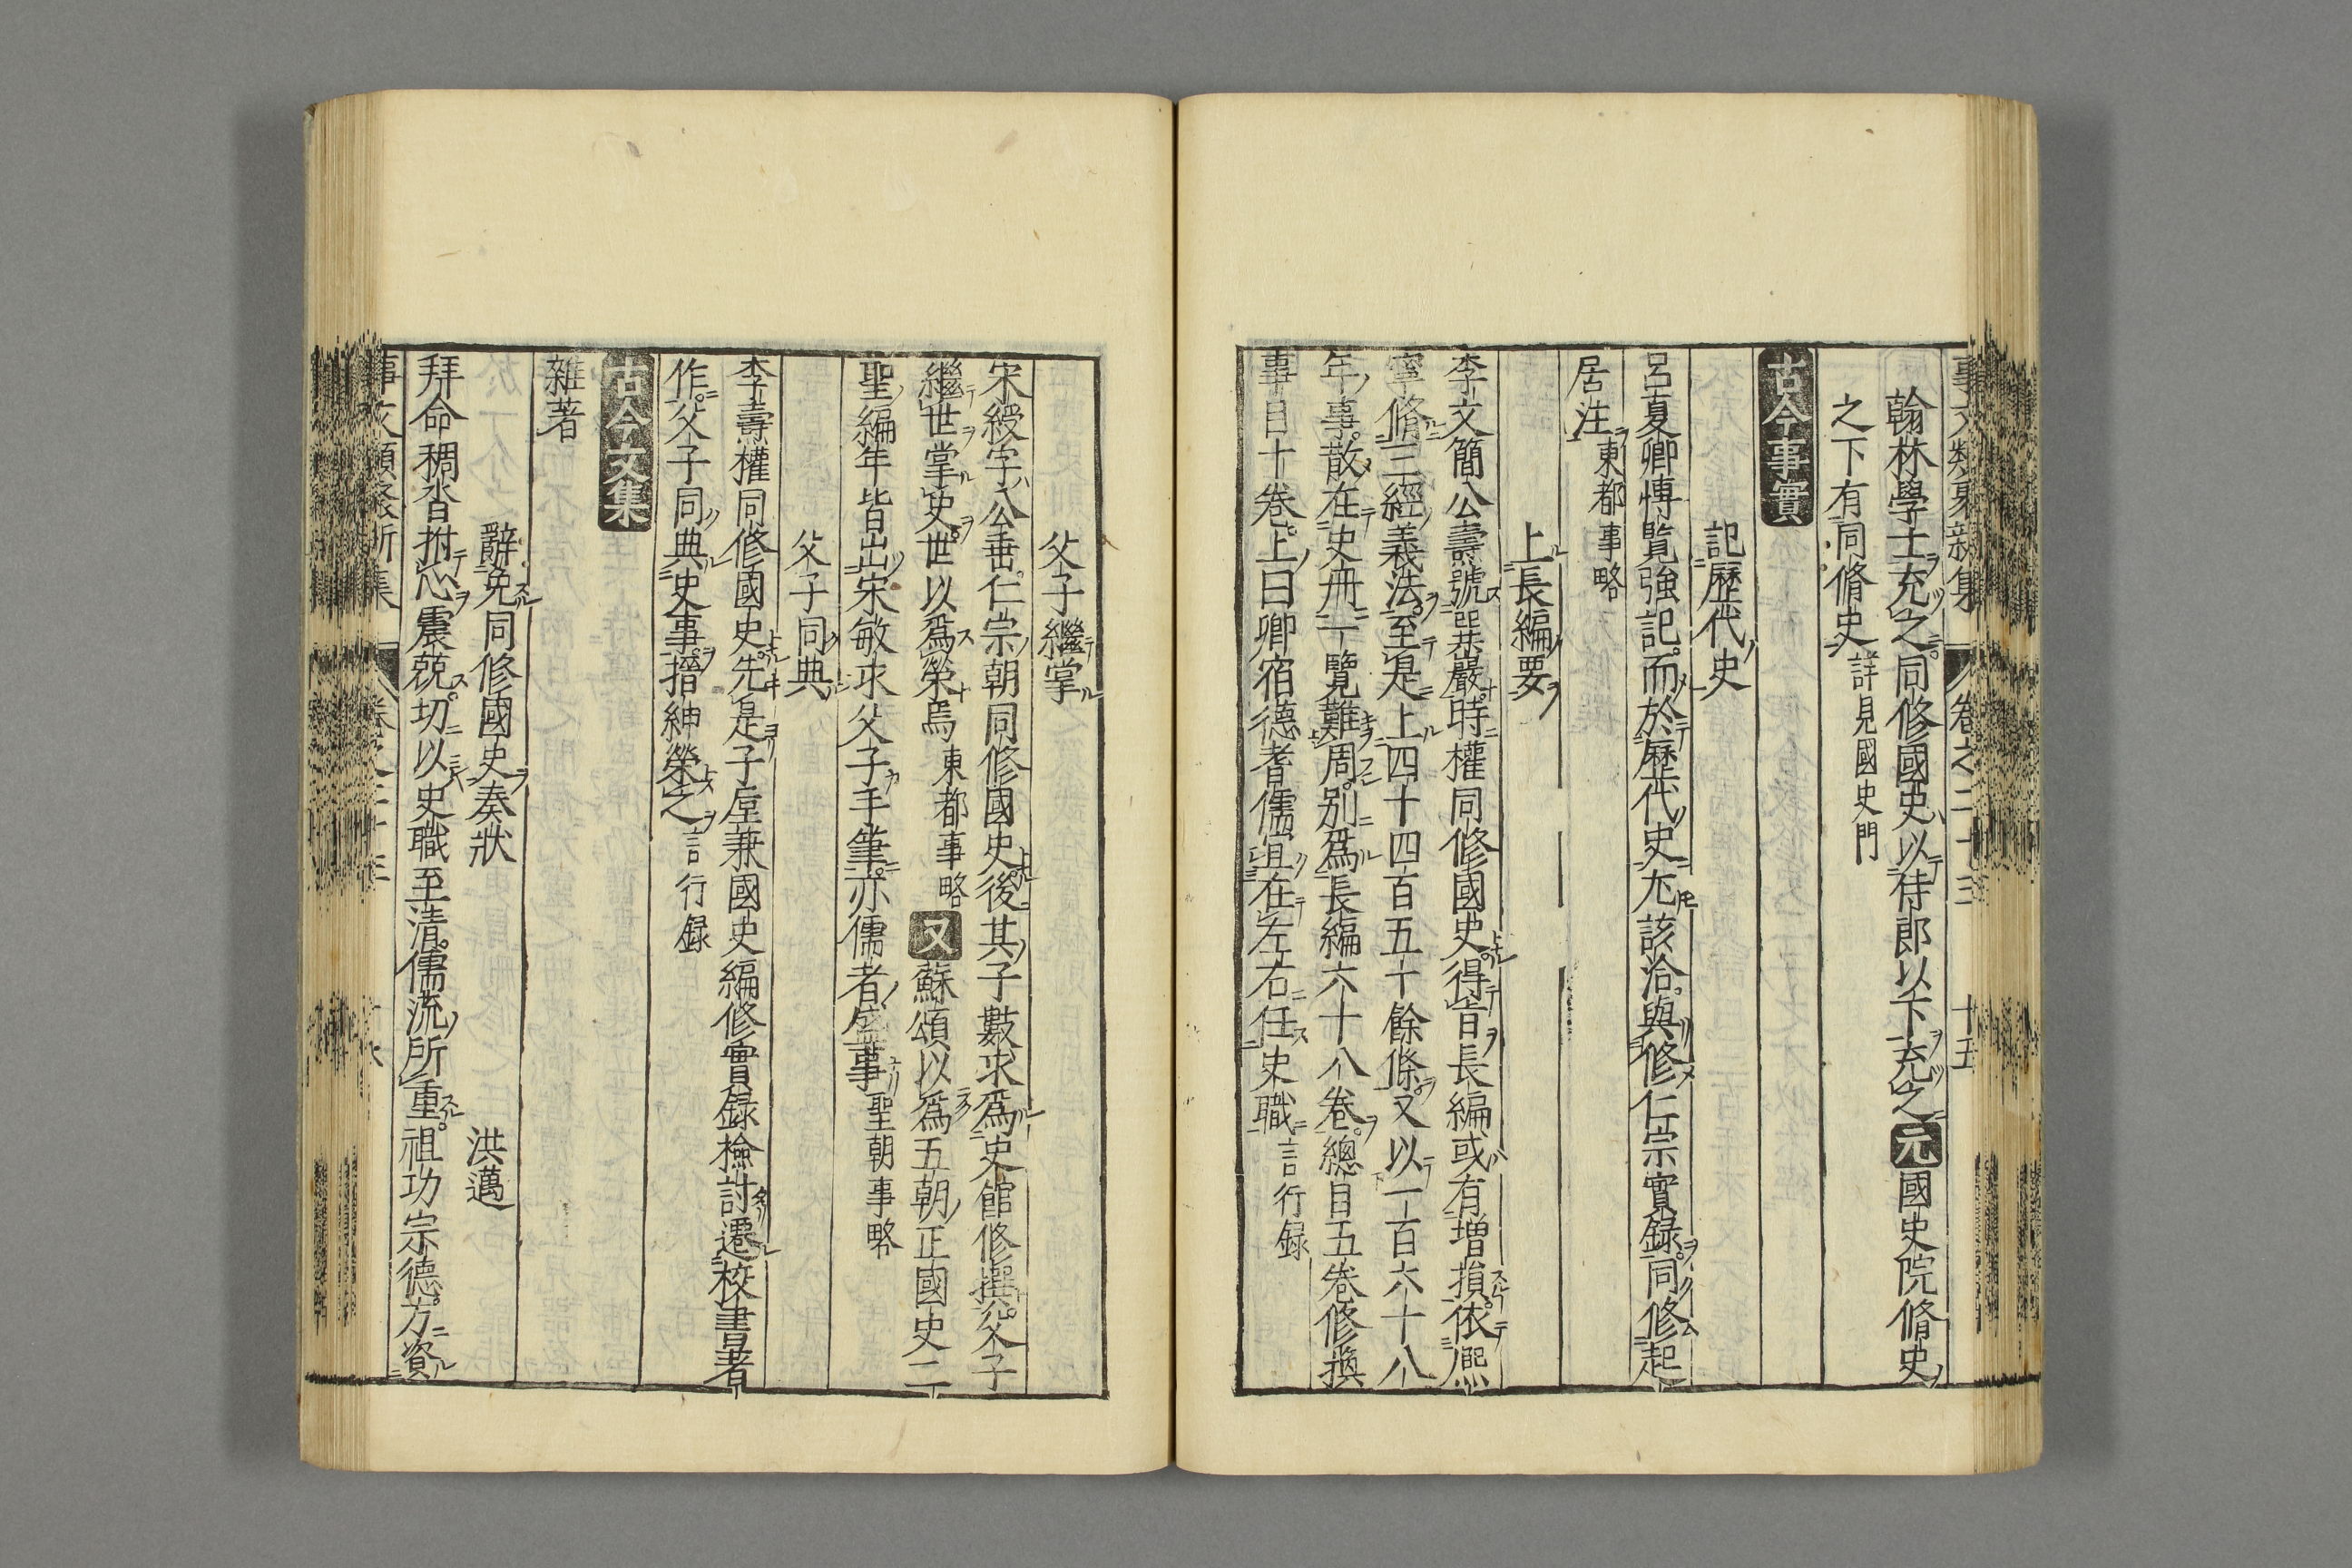 事文類聚新集 卷之二十三 十五
翰林學士充之同修國史以侍郎以下充之元國史院脩史
之下有同脩史詳見國史門
古今事實
記歷代史
呂夏卿愽覧強記而於歷代史尤該洽與修仁宗實録同修起
居注東都事略
上長編要
李文簡公壽號巽巖時權同修國史得旨長編或有増損依熈
寧脩三經義法至是上四十四百五十餘條又以一百六十八
年事散在史冊一覽難周別爲長編六十八卷總目五卷修換
事目十卷上曰卿宿德耆儒宜在左右任史職言行録
父子繼掌
宋綬字公垂仁宗朝同修國史後其子敏求爲史館修撰父子
繼世掌史世以爲榮焉東都事略又蘇頌以爲五朝正國史二
聖編年皆出宋敏求父子手筆亦儒者盛事聖朝事略
父子同典
李壽權同修國史先是子垕兼國史編修實録檢討遷校書著
作父子同典史事搢紳榮之言行録
古今文集
雜著
辭免同修國史奏狀 洪邁
拜命稠沓拊心震兢切以史職至清儒流所重祖功宗德方資
事文類聚新集